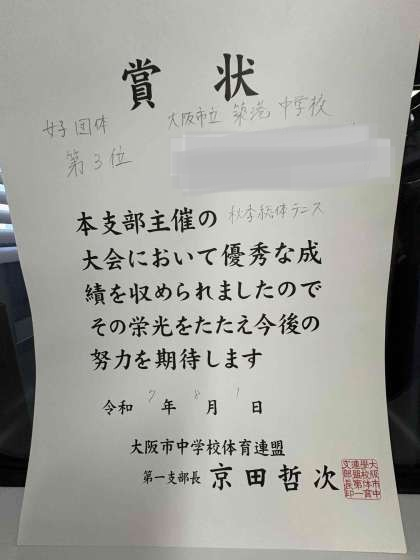 賞状
女子団体 大阪市立 築港 中学校
第3位
本支部主催の 秋季総体テニス
大会において優秀な成
績を収められましたので
その栄光をたたえ今後の
努力を期待します
令和 7 年 8 月 1 日
大阪市中学校体育連盟
第一支部長 京田哲次